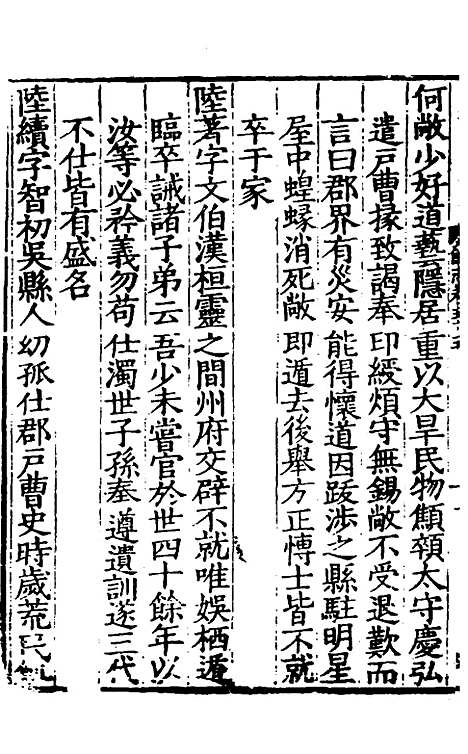 何敞少好道藝隱居重以大旱民物顦顇太守慶弘
遣戸曹掾致謁奉印綬煩守無錫敞不受退歎而
言曰郡界有災安能得懷道因跋涉之縣駐明星
屋中蝗蝝消死敞即遁去後舉方正愽士皆不就
卒于家
陸著字文伯漢桓靈之間州府交辟不就唯娛栖遁
臨卒誡諸子弟云吾少未嘗官於世四十餘年以
汝等必矜義勿苟仕濁世子孫奉遵遺訓遂三代
不仕皆有盛名
陸續字智初吳縣人幼孤仕郡戸曹史時歲荒民